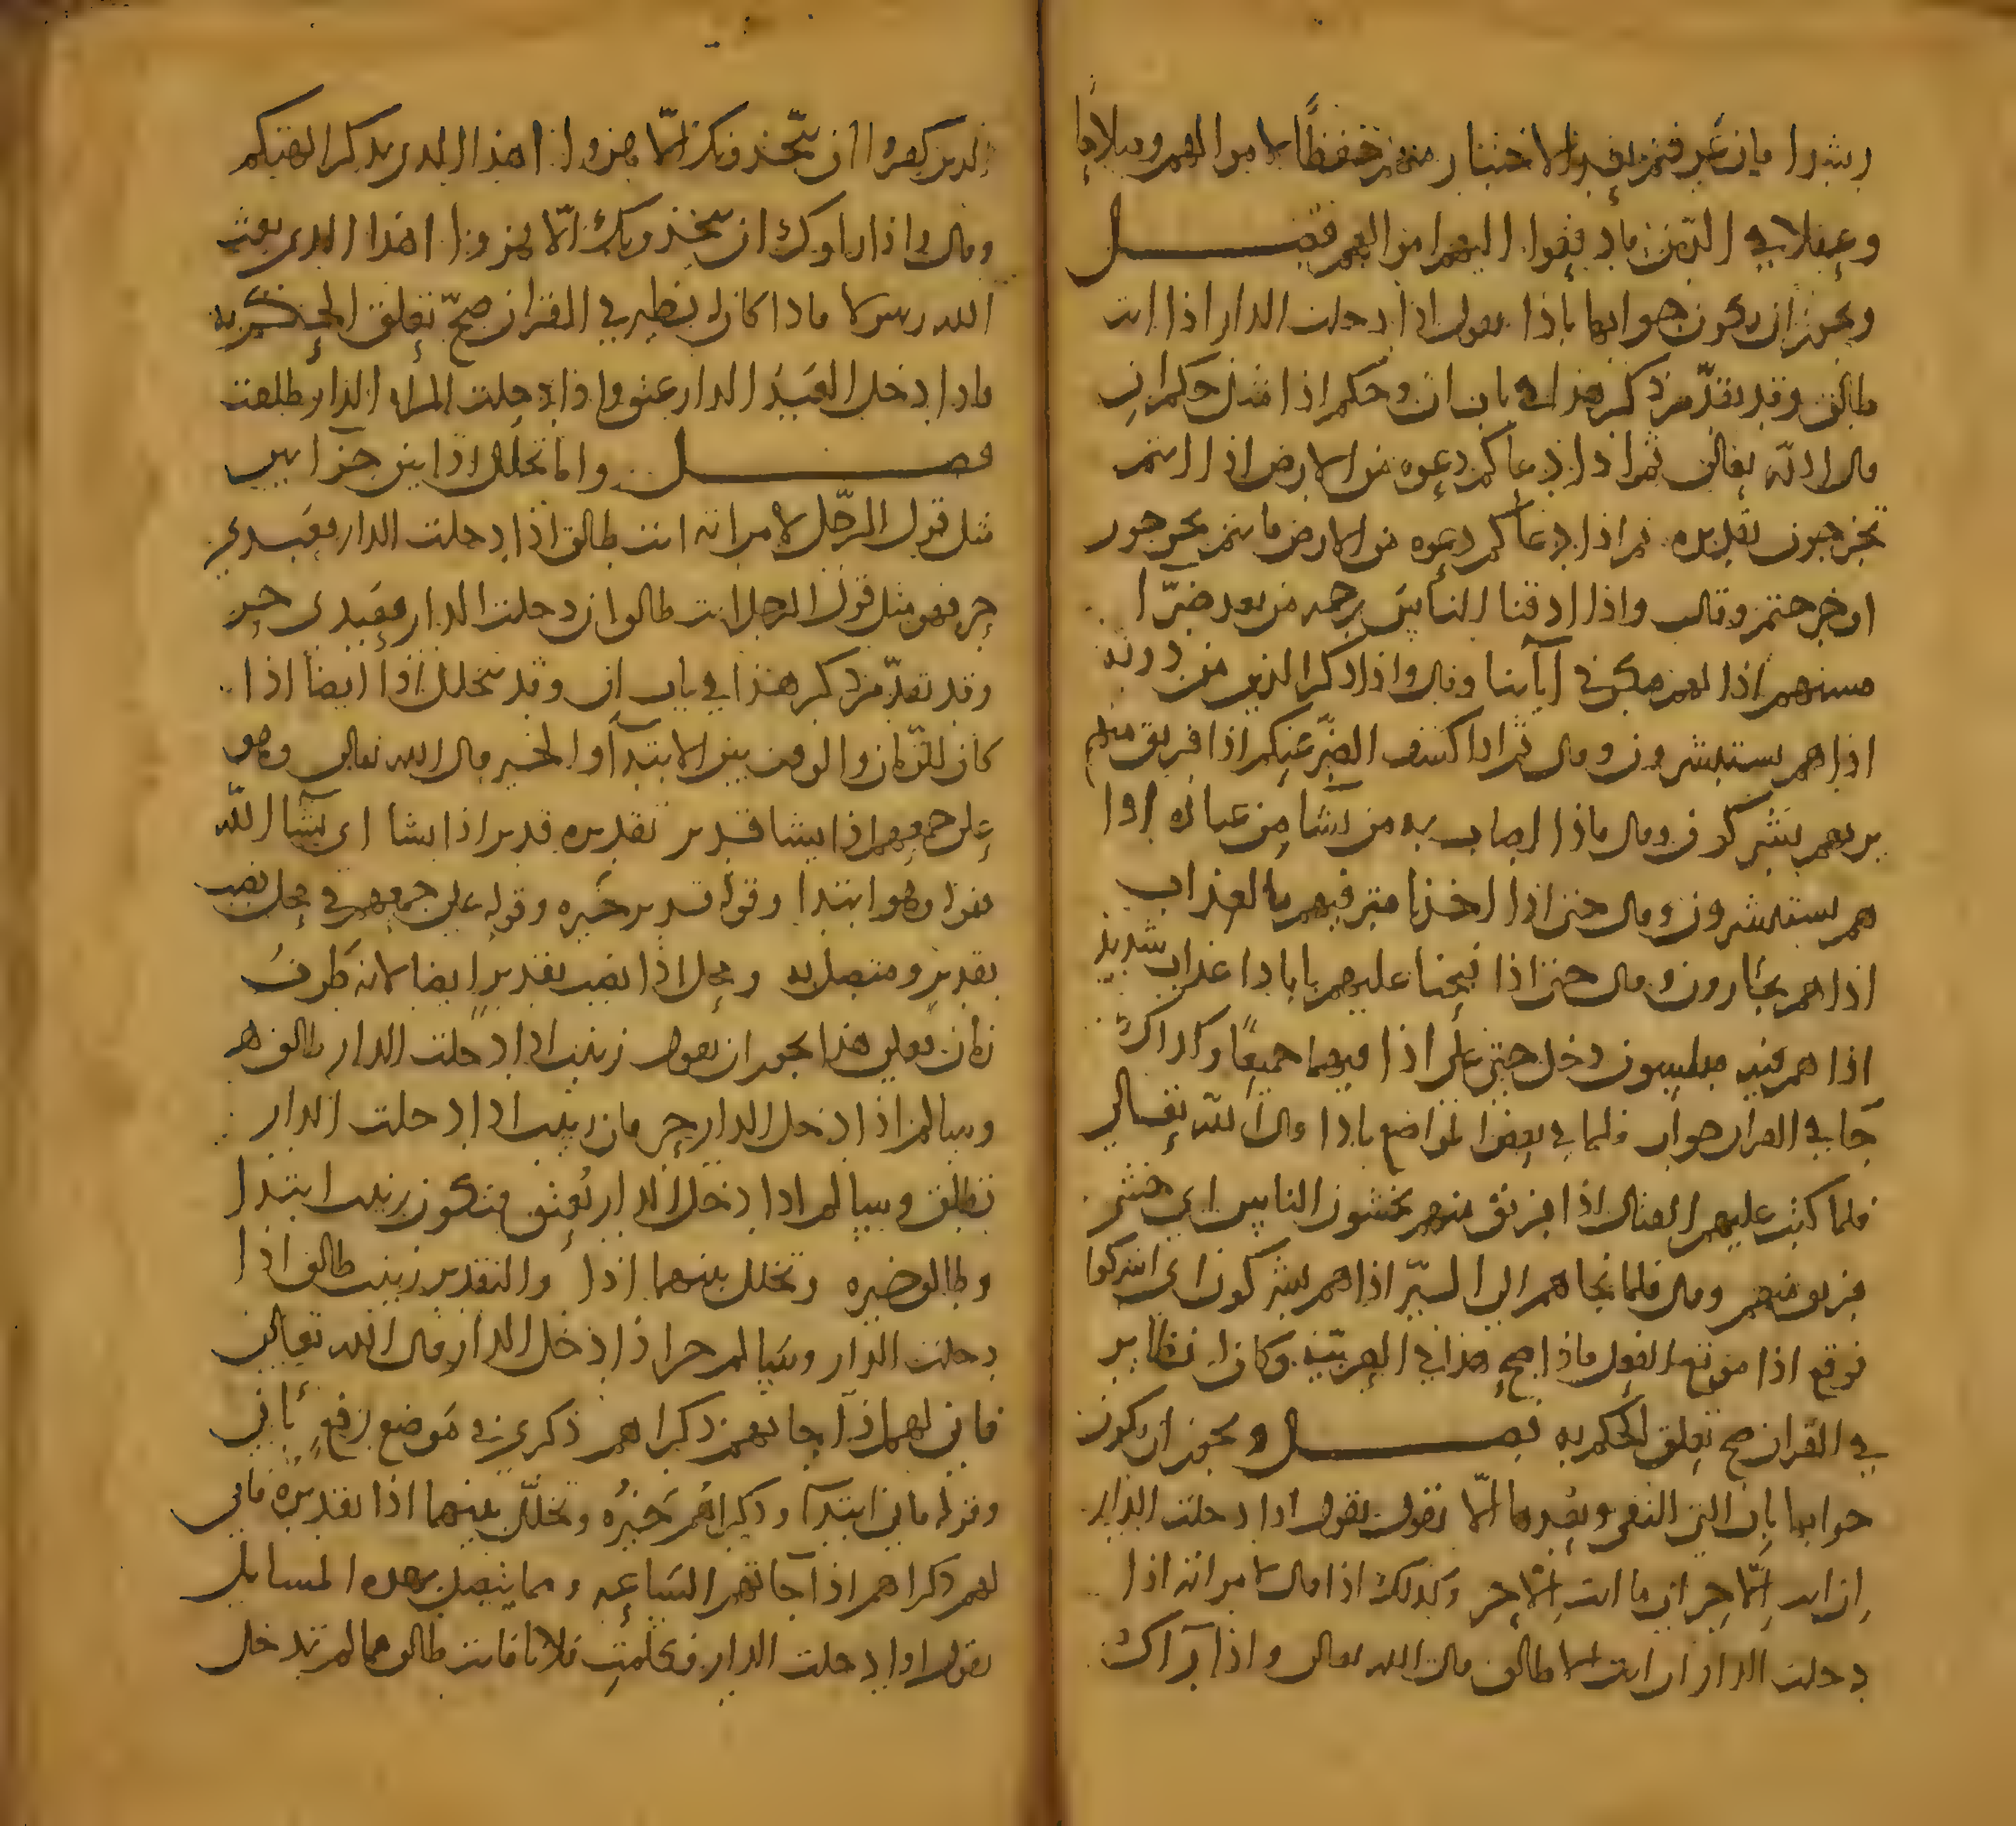 رشدا فان عرفتم بعد الاختبار منهم حفظا لاموالهم وصلاحا
وعقلا في الدين فادفعوا اليهم اموالهم فصل
ويجوز ان يكون جوابها باذا يقول اذا دخلت الدار اذا انت
طالق وقد تقدم ذكر هذا في باب ان وحكم اذا مثل حكم ان
قال الله تعالى ثم اذا دعاكم دعوة من الارض اذا انتم
تخرجون تقديره ثم اذا دعاكم دعوة من الارض فانتم تخرجون
او خرجتم وقال واذا اذقنا الناس رحمة من بعد ضرا
مستهم اذا لهم مكر في آياتنا وقال واذا ذكر الذين من دونه
اذا هم يستبشرون وقال ثم اذا كشف الضر عنكم اذا فريق منكم
بربهم يشركون وقال فاذا اصاب به من يشا من عباده اذا
هم يستبشرون وقال حتى اذا اخذنا مترفيهم بالعذاب
اذا هم يجئرون وقال حتى اذا فتحنا عليهم بابا ذا عذاب شديد
اذا هم فيه مبلسون دخل حتى على اذا فيهما جميعا وكذلك
جا في القران جواب فلما في بعض المواضع باذا قال الله تعالى
فلما كتب عليهم القتال اذا فريق منهم يخشون الناس اي خشي
فريق منهم وقال فلما نجاهم الى البر اذا هم يشركون اي اشركوا
فوقع اذا موقع الفعل فاذا صح هذا في العربية وكان له نظاير
في القران صح تعلق الحكم به فصل ويجوز ان يكون
جوابها بان التي للنفي وبعدها الا تقول يقول اذا دخلت الدار
ان انت الا حر اي ما انت الا حر وكذلك اذا قال لامراته اذا
دخلت الدار ان انت الا طالق قال الله تعالى واذا رآك
الذين كفروا ان يتخذونك الا هزوا اهذا الذي يذكر الهتكم
وقال واذا راوك ان يتخذونك الا هزوا اهذا الذي بعث
الله رسولا فاذا كان له نظير في القران صح تعلق الحكم به
فاذا دخل العبد الدار عتق واذا دخلت المراة الدار طلقت
فصل واما تخلل اذا بين جزايين
مثل قول الرجل لامراته انت طالق اذا دخلت الدار وعبدي
حر فهو مثل قول الرجل انت طالق ان دخلت الدار وعبدي حر
وقد تقدم ذكر هذا في باب ان وقد تخلل اذا ايضا اذا
كان للزمان والوقت بين الابتدآ والخبر قال الله تعالى وهو
على جمعهم اذا يشا قدير تقديره قدير اذا يشا اي يشا الله
فقوله وهو ابتدا وقوله قدير خبره وقوله على جمعهم في محل نصب
بقدير ومتصل به ومحل اذا نصب بقدير ايضا لانه ظرف
زمان فعلى هذا يجوز ان يقول زينب اذا دخلت الدار طالق هي
وسالم اذا دخل الدار حر فان زينب اذا دخلت الدار
تطلق وسالم اذا دخل الدار يعتق فتكون زينب ابتدا
وطالق خبره وتخلل بينهما اذا والتقدير زينب طالق اذا
دخلت الدار وسالم حر اذا دخل الدار قال الله تعالى
فانى لهم اذا جاتهم ذكراهم ذكرى في موضع رفع بانى
وقوله فانى ابتدآ وذكراهم خبره وتخلل بينهما اذا تقديره فانى
لهم ذكراهم اذا جاتهم الساعة ومما يتصل بهذه المسايل
يقول اذا دخلت الدار فكلمت فلانا فانت طالق فما لم تدخل